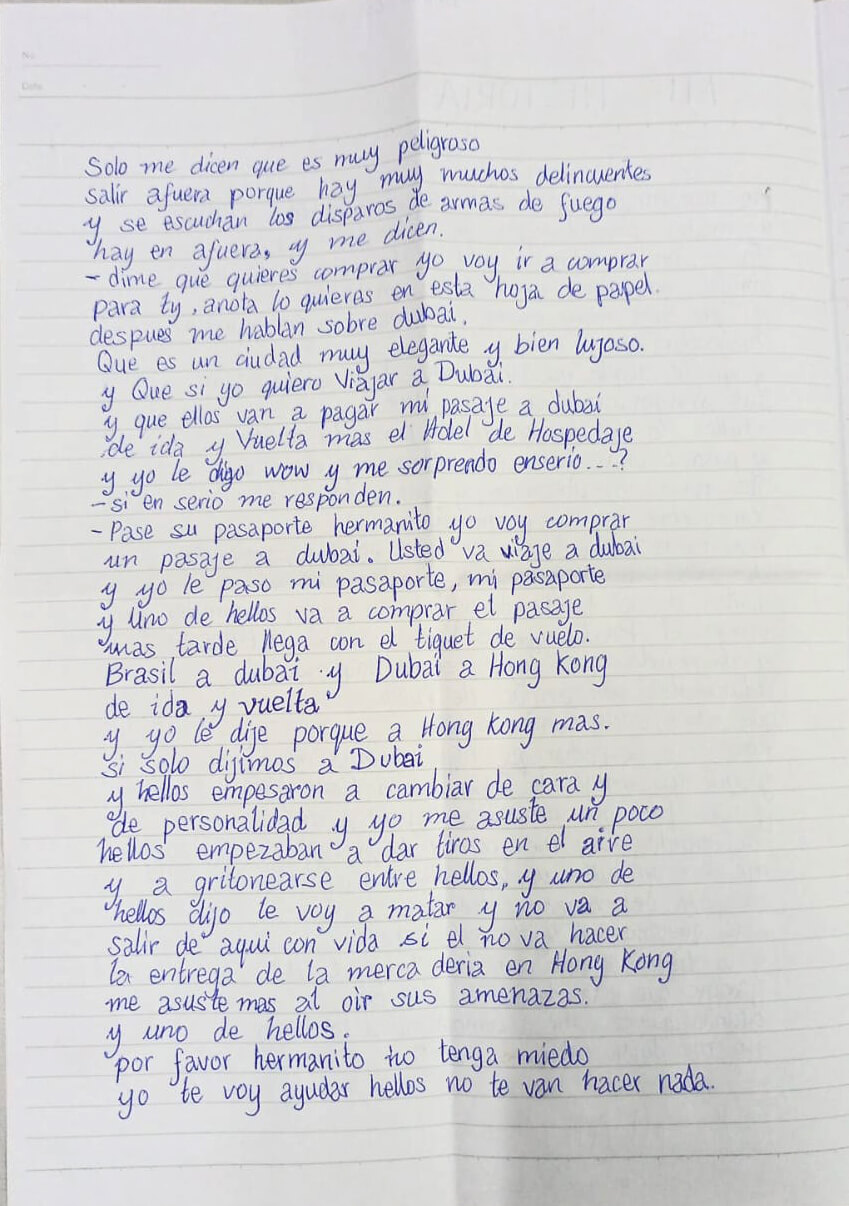 Solo me dicen que es muy peligroso
salir afuera porque hay muy muchos delincuentes
y se escuchan los disparos de armas de fuego
hay en afuera, y me dicen.
- dime que quieres comprar yo voy ir a comprar
para ty, anota lo quieras en esta hoja de papel.
despues me hablan sobre dubai.
Que es un ciudad muy elegante y bien lujoso.
y Que si yo quiero Viajar a Dubai.
y que ellos van a pagar mi pasaje a dubai
de ida y Vuelta mas el Hotel de Hospedaje
y yo le digo wow y me sorprendo enserio...?
- si en serio me responden.
- Pase su pasaporte hermanito yo voy comprar
un pasaje a dubai. Usted va viaje a dubai
y yo le paso mi pasaporte, mi pasaporte
y Uno de hellos va a comprar el pasaje
mas tarde llega con el tiquet de vuelo.
Brasil a dubai y Dubai a Hong Kong
de ida y vuelta
y yo le dije porque a Hong Kong mas.
si solo dijimos a Dubai
y hellos empesaron a cambiar de cara y
de personalidad y yo me asuste un poco
hellos empezaban a dar tiros en el aire
y a gritonearse entre hellos, y uno de
hellos dijo le voy a matar y no va a
salir de aqui con vida si el no va hacer
la entrega de la merca deria en Hong Kong
me asuste mas al oir sus amenazas.
y uno de hellos.
por favor hermanito no tenga miedo
yo te voy ayudar hellos no te van hacer nada.